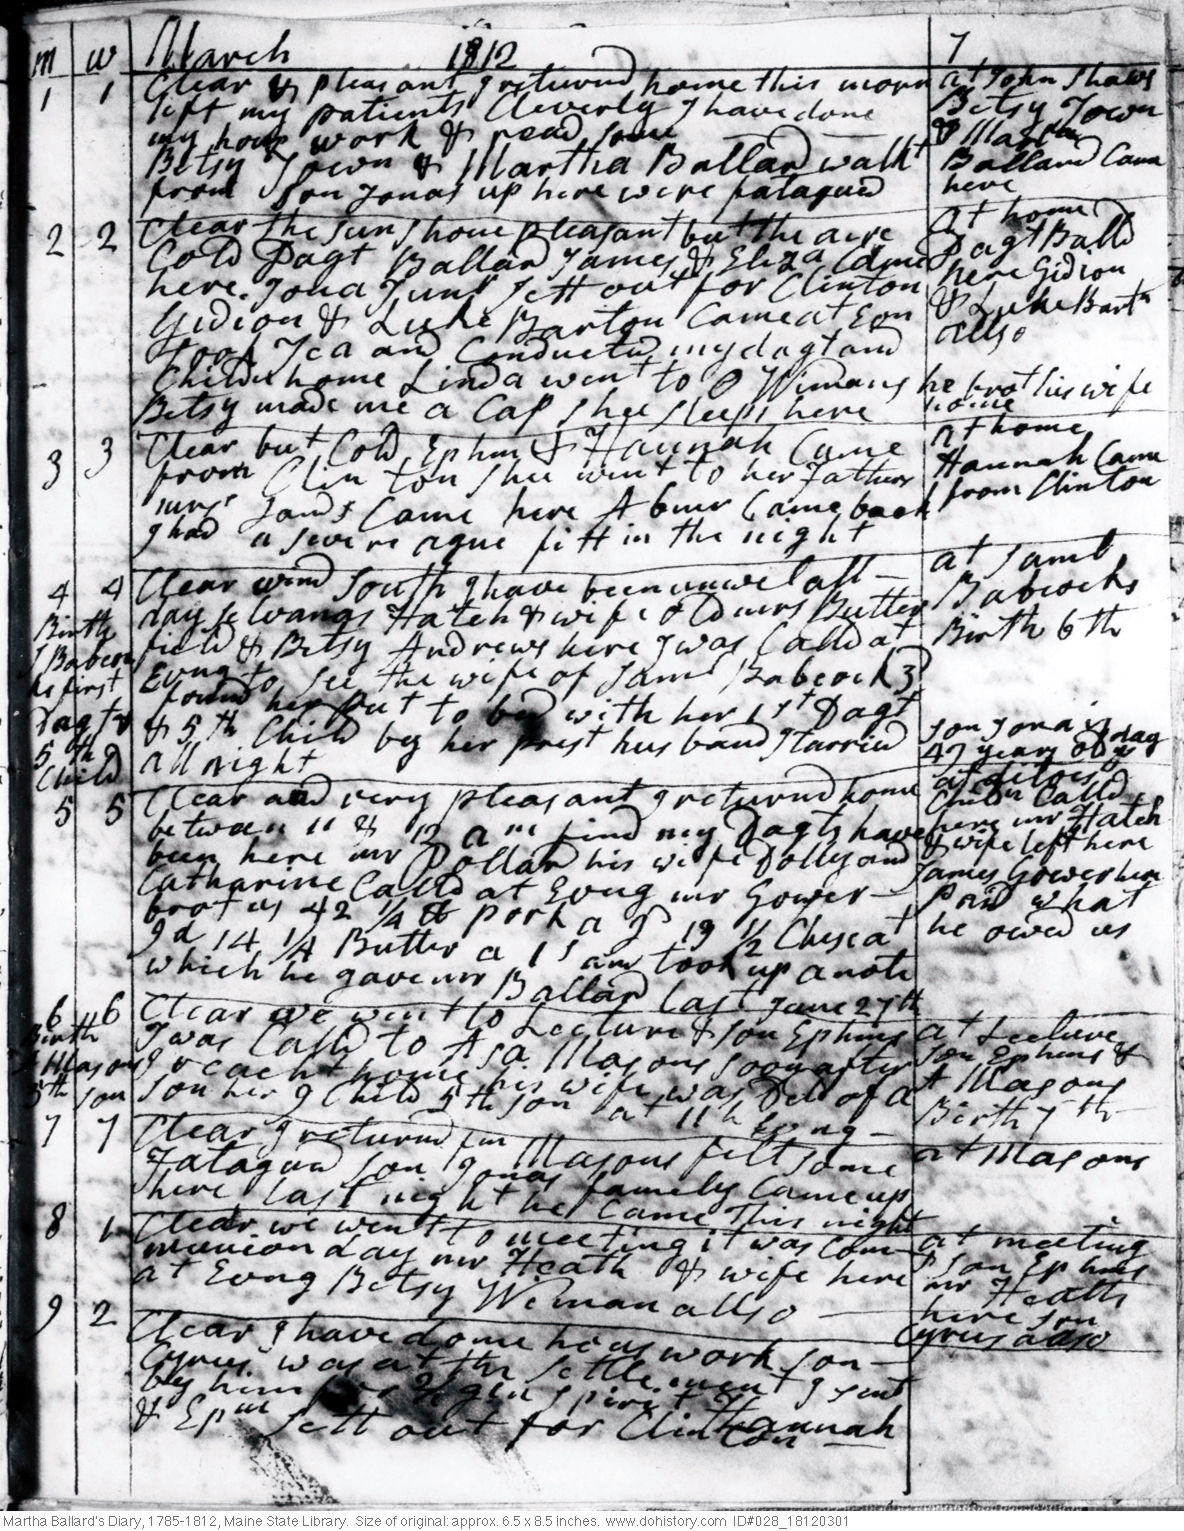 m w March 1812 7
1 1 Clear & pleasant I returnd home this morn
left my patients Cleverly I have done
my hous work & read some
Betsy Town & Martha Ballard walkt
from son Jonas up here were fatagud
at John Shaws
Betsy Town
& Martha
Ballard Came
here
2 2 Clear the sun shone pleasant but the aire
Cold Dagt Ballard James & Eliza Came
here. Jona Junr sett out for Clinton
Gidion & Luke Barton Came at Evn
Took Tea and Conducted my dagt and
Childn home Linda went to Wimans
Betsy made me a Cap shee sleeps here
at home
Dagt Balld
here Gidion
& Luke Bartn
allso
he brot his wife
home
3 3 Clear but Cold Ephm & Hannah Came
from Clinton shee went to her Fathers
mrs Came here Abner Came back
I had a severe ague fitt in the night
at home
Hannah Came
from Clinton
4 4 Clear wind South I have been unwel all
day Hatch & wife old mrs Butter
field & Betsy Andrews here I was Calld at
Evng to see the wife of Saml Babcock 3
found her put to bed with her 1st Dagt
& 5th Child by her prest husband I tarried
all night
Birth
Babcocks
first
Dagt &
5th
Child
at Saml
Babcocks
Birth 6th
son Jona is
47 years old
5 5 Clear and very pleasant I returnd home
between 11 & 12 am find my Dagts have
been here mr Pollard his wife Dolly and
Catharine Calld at Evng mr Gower
brot us 42 1/4 lb pork a 19 1/2 Chese at
9d 14 1/4 Butter a 1s and took up a note
which he gave mr Ballard last June 27th
Childn Calld
here mr Hatch
& wife left here
James Gower here
Paid what
he owed us
6 6 Clear we went to Lecture & son Ephms
I was Calld to Asa Masons soon after
I reacht home his wife was Deld of a
son her 9 Child 5th son at 11 h Evng
Birth
A Masons
5th son
at Lecture
son Ephms &
A Masons
Birth 7th
7 7 Clear I returnd fm Masons felt some
Fatagud son Jonas famely Came up
here last night he Came this night
at Masons
8 1 Clear we went to meeting it was Com
munion day mr Heath & wife here
at Evng Betsy Wiman allso
at meeting
& son Ephms
mr Heath
here son
Cyrus allso
9 2 Clear I have done hous work son
Cyrus was at the Settlement I sent
by him for 2 gln spirit Hannah
& Epm sett out for Clinton
Martha Ballard's Diary, 1785-1812, Maine State Library. Size of original: approx. 6.5 x 8.5 inches. www.dohistory.com ID#028_18120301